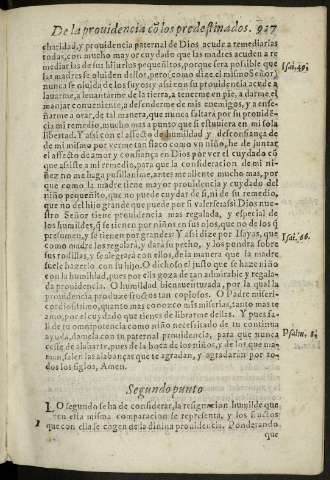 De la prouidencia cõ los predestinados. 927
charidad, y prouidencia paternal de Dios acude a remediarlas
todas, con mucho mayor cuydado que las madres acuden a re
mediar las de sus hijuelos pequeñitos, porque sera possible que
las madres se oluiden dellos, pero (como dize el mismo Señor)
nunca se oluida de los suyos: y assi con su prouidencia acude a
lauarme, a leuantarme de la tierra, a tenerme en pie, a darme el
manjar conueniente, a defenderme de mis enemigos, y a enseñ-
arme a orar, de tal manera, que nunca faltara por su prouidẽ-
cia mi remedio, mucho mas a punto que si estuuiera en mi sola
libertad. Y assi con el affecto de humildad y desconfiança de
de mi mismo por verme tan flaco como vn niño, he de juntar
el affecto de amor y confiança en Dios por ver el cuydado cõ
que assiste a mi remedio, para que la consideracion de mi ni-
ñez no me haga pusillanime, antes me aliente mucho mas, por
que como la madre tiene mayor prouidencia y cuydado del
niño pequeñito, que no puede cuydar de si, ni de su remedio,
que no del hijo grande que puede por si valerse: assi Dios nue-
stro Señor tiene prouidencia mas regalada, y especial de
los humildes, q̃ se tienen por niños en sus ojos, que no de los q̃
presumen, y se tienen por grandes: Y assi dize por Isayas, que
como madre los regalara, y dara su pecho, y los pondra sobre
sus rodillas, y se alegrara con ellos, de la manera que la madre
suele hazerlo con su hijo. O dichoso el justo que se haze niño
con la humildad, pues por ella goza de tan admirable y regala-
da prouidencia. O humildad bienauenturada, por la qual la
prouidencia produze fructos tan copiosos. O Padre miseri-
cordiosissimo, quanto mas conozco mis miserias, tanto mas te
amo, por el cuydado que tienes de librarme dellas. Y pues sa-
li de tu omnipotencia como niño necessitado de tu continua
ayuda, llamela con tu paternal prouidencia, para que nunca
cesse de alabarte, pues de la boca de los niños, y de los que ma-
man, salen las alabanças que te agradan, y agradaràn por to-
dos los siglos, Amen.
Isai. 49.
Isai. 66.
Psalm. 8.
Segundo punto
LO segundo se ha de considerar, la resignacion humilde que
en esta misma comparacion se representa, y los fructos
que con ella se cogen de la diuina prouidencia. Ponderando
que